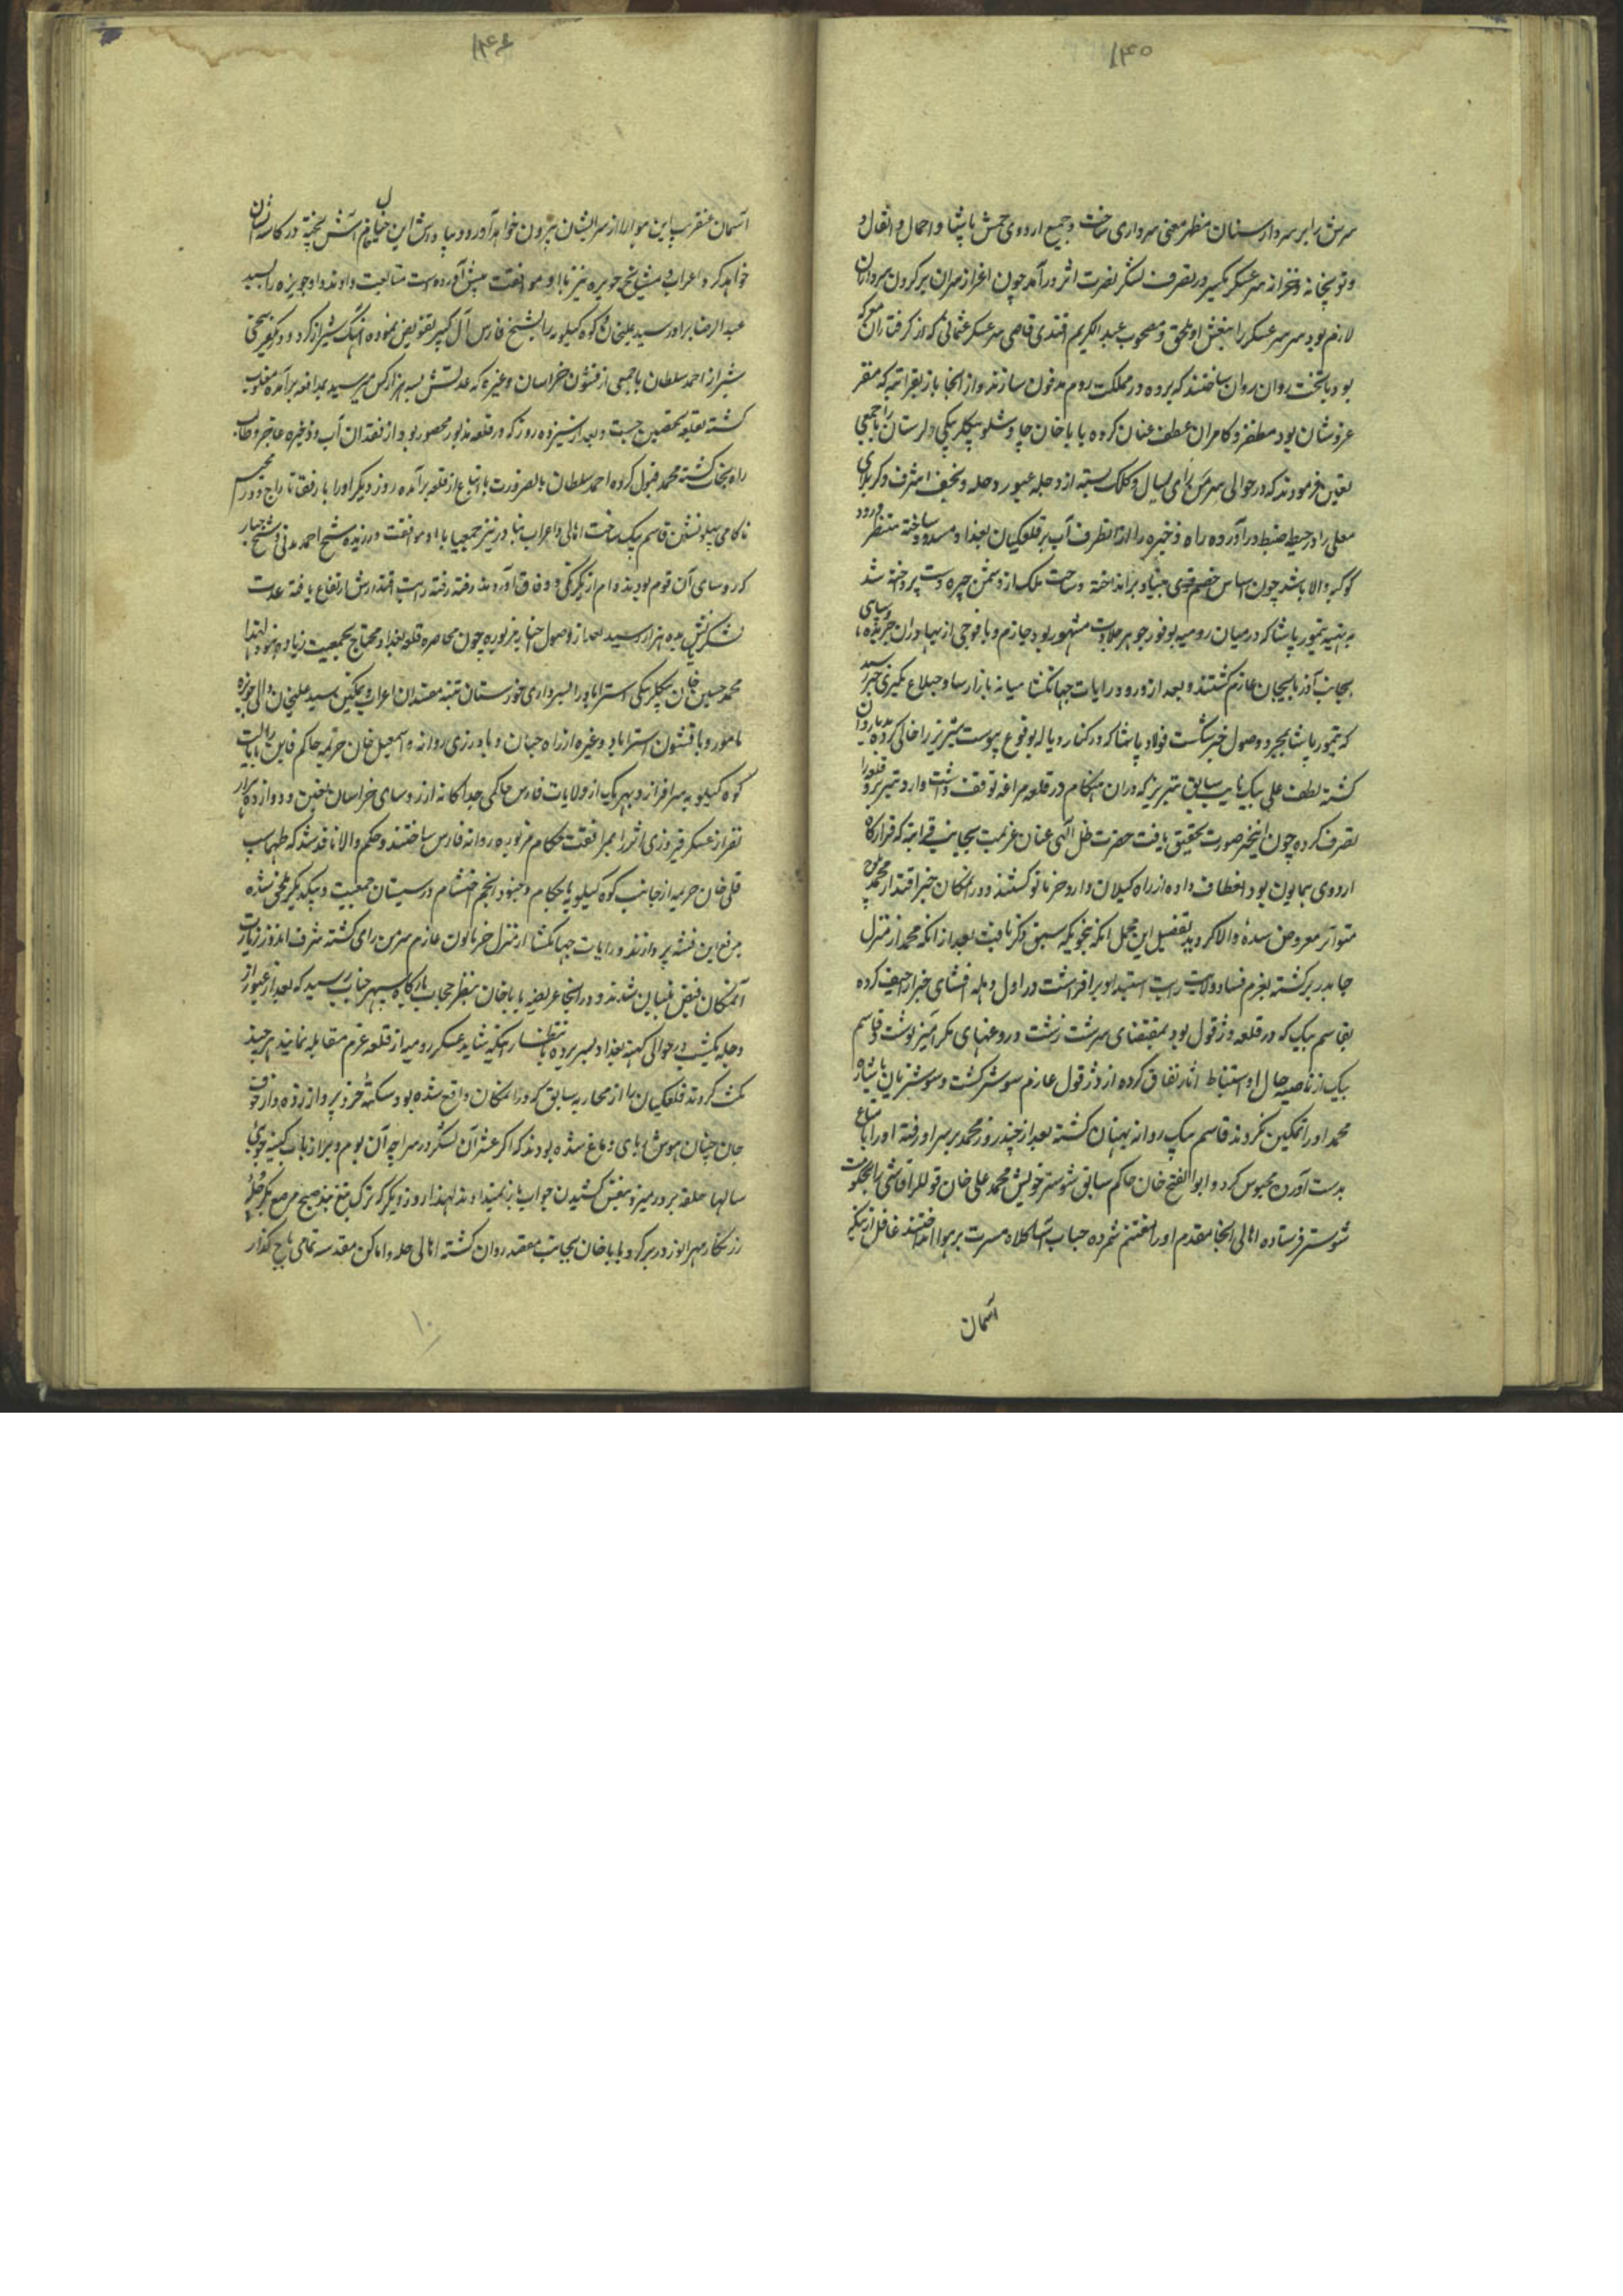 ۱۴۵
سرش را بر سردار سنان مظهر معنی سرداری ساخت و جمیع اردوی حمش پاشا و احمال و اثقال و
و توپخانه و خزانه سرعسکر یکسر در تصرف لشکر نصرت اثر درآمد چون اعزاز سران بر گردن سروران
لازم بود سر سرعسکر را بنعش او ملحق و مصحوب عبدالکریم افندی قاضی سرعسکر عثمانی که از گرفتاران معرکه
بود با تخت روان روان ساختند که برده در مملکت روم مدفون سازند و از انجا باز بقراتپه که مقر
عز و شان بود مظفر و کامران عطف عنان کرده باباخان چاوشلو بیگلربیگی لرستان را با جمعی
تعین فرمودند که در حوالی سرمن رای بسال و کلک بسته از دجله عبور و حله و نجف اشرف و کربلای
معلی را در حیطه ضبط درآورده راه ذخیره را از انطرف آب بر قلعگیان بغداد مسدود ساخته منتظر ورود
کوکبه والا باشد چون اساس خصم قوی بنیاد برانداخته و ساحت ملک از دشمن چیره دست پرداخته شد
به تنبیه تیمور پاشا که در میان رومیه بوفور جوهر جلادت مشهور بود جازم و با فوجی از بهادران جریده
بجانب آذربایجان عازم گشتند و بعد از ورود رایات جهانگشا میانه بازار ساوجبلاغ مکری خبر رسید
که تیمور پاشا بمجرد وصول خبر شکست فولاد پاشا که در کنار دیاله بوقوع پیوست تبریز را خالی کرده روان
گشته لطف علی بیک نایب سابق تبریز که در ان هنگام در قلعه مراغه توقف داشت وارد تبریز و قلعه را
تصرف کرده چون اینخبر صورت تحقیق یافت حضرت ظل الهی عنان عزیمت بجانب قراتپه که قرارگاه
اردوی همایون بود انعطاف داده از راه کیلان وارد خرماتو گشتند و در انمکان خبر اقتدار محمد بلوچ
متواتر معروض سده والا گردید تفصیل این مجمل انکه بنحویکه سبق ذکر یافت بعد از انکه محمد از منزل
جایدر برگشته بعزم فساد ولایت رایت استبداد برافراشت در اول وهله افشای خبر اراجیف کرده
بقاسم بیک که در قلعه دزفول بود بمقتضای سرشت زشت دروغهای مکرآمیز نوشت و قاسم
بیک از ناصیه حال او استنباط آثار نفاق کرده از دزفول عازم شوشتر گشت و شوشتریان باشاره
محمد او را تمکین نکردند قاسم بیک روانه بهبهان گشته بعد از چند روز محمد بر سر او رفته او را با اتباع
بدست آورده محبوس کرد و ابوالفتح خان حاکم سابق شوشتر خویش محمد علی خان قوللر آقاسی را بحکومت
شوشتر فرستاده اهالی انجا مقدم او را مغتنم شمرده حباب آسا کلاه مسرت بر هوا انداختند غافل از اینکه
آسمان
۱۴۶
آسمان عنقریب این هوا را از سر ایشان بیرون خواهد آورد و بپاداش این خیال خام آش پخته در کاسه شان
خواهد کرد و اعراب و مشایخ حویزه نیز با او موافقت پیش آورده دست متابعت دادند و او حویزه را بسید
عبدالرضا برادر سید علیخان و کوه کیلویه را بشیخ فارس آل کثیر تفویض نموده آهنگ شیراز کرد و در یکفرسخی
شیراز احمد سلطان با جمعی از قشون خراسان و غیره که عدتش بسه هزار کس میرسید بمدافعه برآمده مغلوب
گشته بقلعه تحصین جست و بعد از سیزده روز که در قلعه مذبور محصور بود از فقدان آب و ذخیره عاجز و طالب
راه نجات گشته محمد قبول کرده احمد سلطان بالضرورت با اتباع از قلعه برآمده روز دیگر او را با رفقا تاراج و در محبس
ناکامی پهلونشین قاسم بیک ساخت اهالی و اعراب بنادر نیز جمیعا با او موافقت ورزیده شیخ احمد مدنی و شیخ جبار
که روسای آن قوم بودند دم از یکرنگی و وفاق آوردند رفته رفته رایت اقتدارش ارتفاع یافته عدت
لشکریانش بده هزار رسید بعد از وصول اخبار مزبوره چون محاصره قلعه بغداد محتاج بجمعیت زیاد نبود لهذا
محمد حسین خان بیگلربیگی استراباد را بسرداری خوزستان تنبیه مفسدان اعراب و تمکین سید علیخان والی حویزه
مامور و با قشون استراباد و غیره از راه جسان و بادرائی روانه و اسمعیل خان خزیمه حاکم قاین بایالت
کوه کیلویه سرافراز و بهر یک از ولایات فارس حاکمی جداگانه از روسای خراسان تعیین و دوازده هزار
نفر از عسکر فیروزی اثر را بمرافقت حکام مزبوره روانه فارس ساختند و حکم والا نافذ شد که طهماسب
قلی خان جلایر از جانب کوه کیلویه با حکام و جنود انجم احتشام در سیستان جمعیت و بیکدیگر ملحق شده
برفع این فتنه پردازند و رایات جهانگشا از منزل خرماتون عازم سرمن رای گشته شرف اندوز زیارت
آنمکان فیض بنیان شدند و در انجا عریضه باباخان بنظر حجاب بارگاه سپهر جناب رسید که بعد از عبور از
دجله یکشب در حوالی کهنه بغداد بسر برده بانتظار اینکه شاید عسکر رومیه از قلعه عزم مقابله نمایند هر چند
مکث کردند قلعگیان را از محاربه سابق که در انمکان واقع شده بود سکته خرد پرواز زده و از خوف
جان چنان هوش ربای دماغ شده بودند که اگر عشر آن لشکر در سراچه آن بوم و بر از باب کینه جوئی
سالها حلقه بر در میزد بنفس کشیدن جواب باز نمیدادند لهذا روز دیگر که ترک تیغ بند صبح مرصع کمر و جلوه
زرنگار مهر انور در بر کرد باباخان بجانب مقصد روان گشته اهالی حله و اماکن مقدسه تمامی باج گذار
۱۰